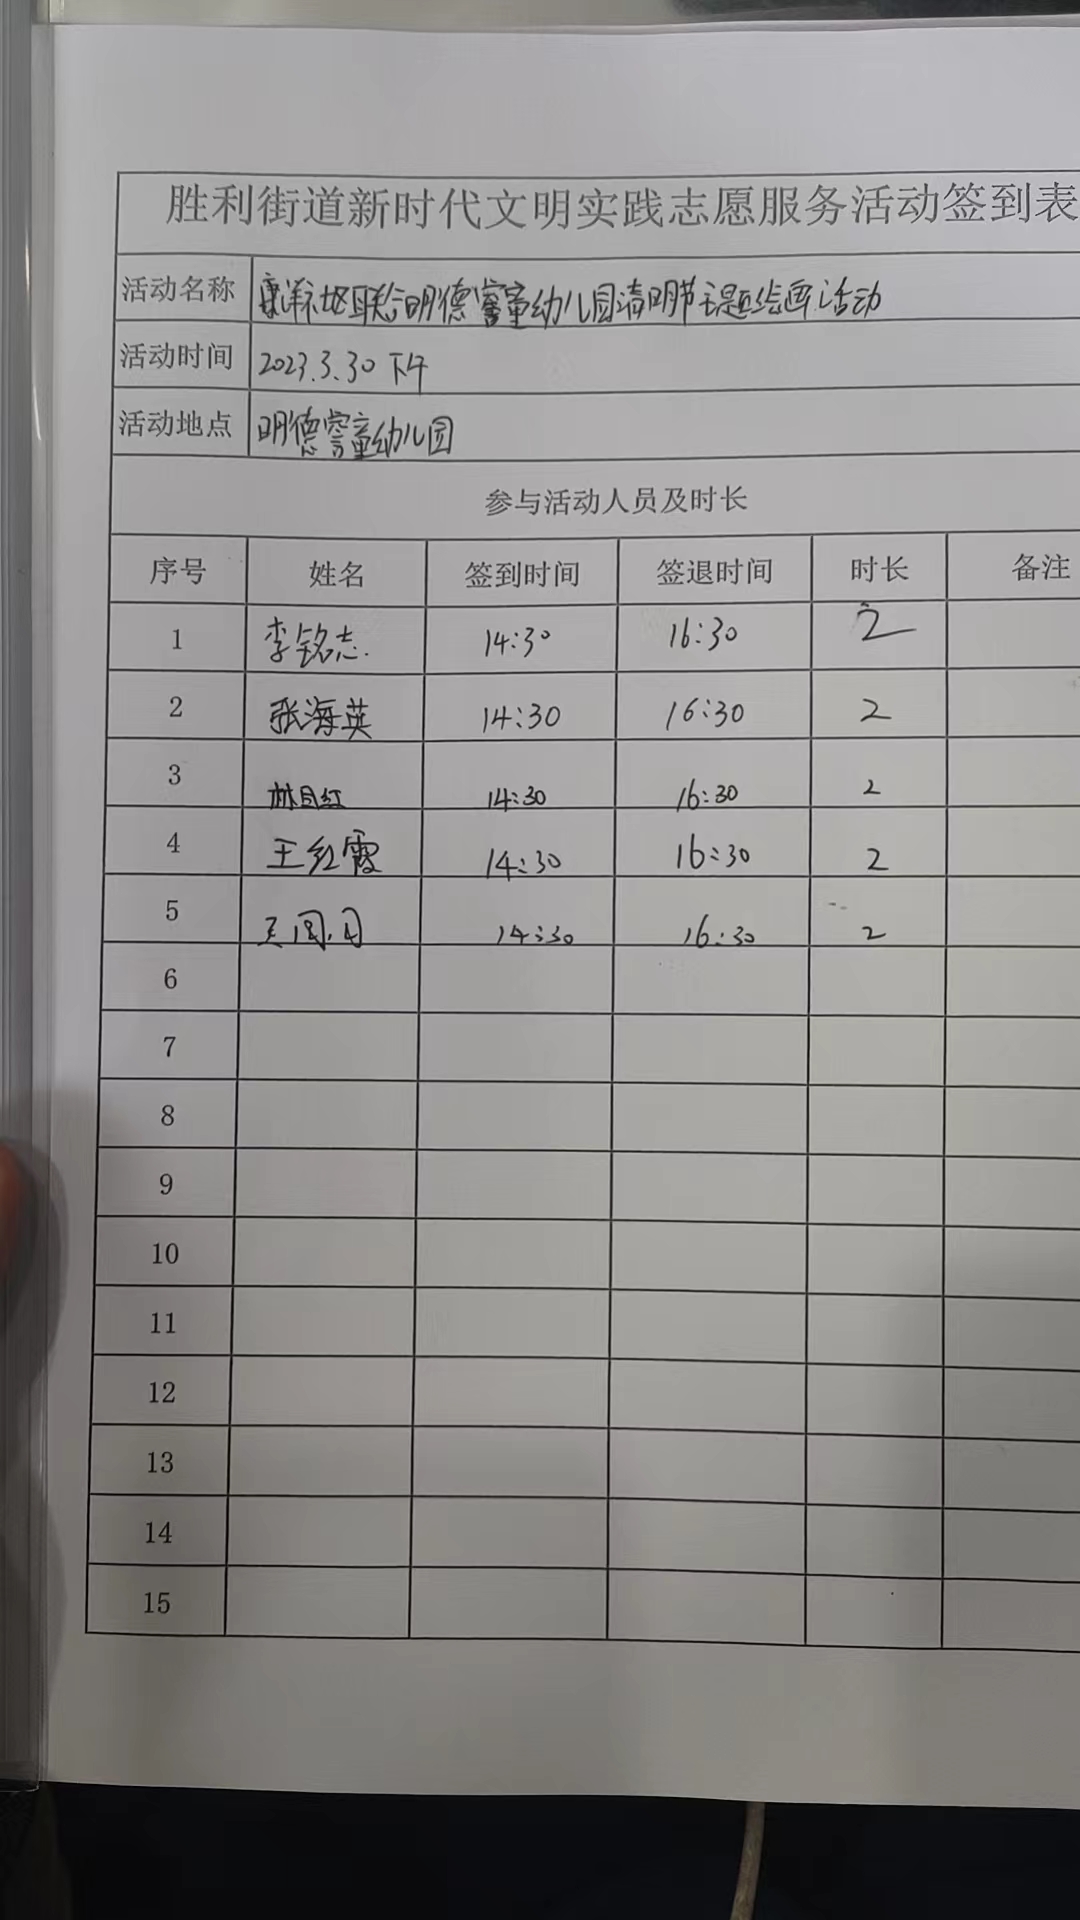 胜利街道新时代文明实践志愿服务活动签到表
活动名称 康洋社区联合明德睿童幼儿园清明节主题绘画活动
活动时间 2023.3.30 下午
活动地点 明德睿童幼儿园
参与活动人员及时长
序号 姓名 签到时间 签退时间 时长 备注
1 李铭志 14:30 16:30 2
2 张海英 14:30 16:30 2
3 14:30 16:30 2
4 王红霞 14:30 16:30 2
5 14:30 16:30 2
6
7
8
9
10
11
12
13
14
15